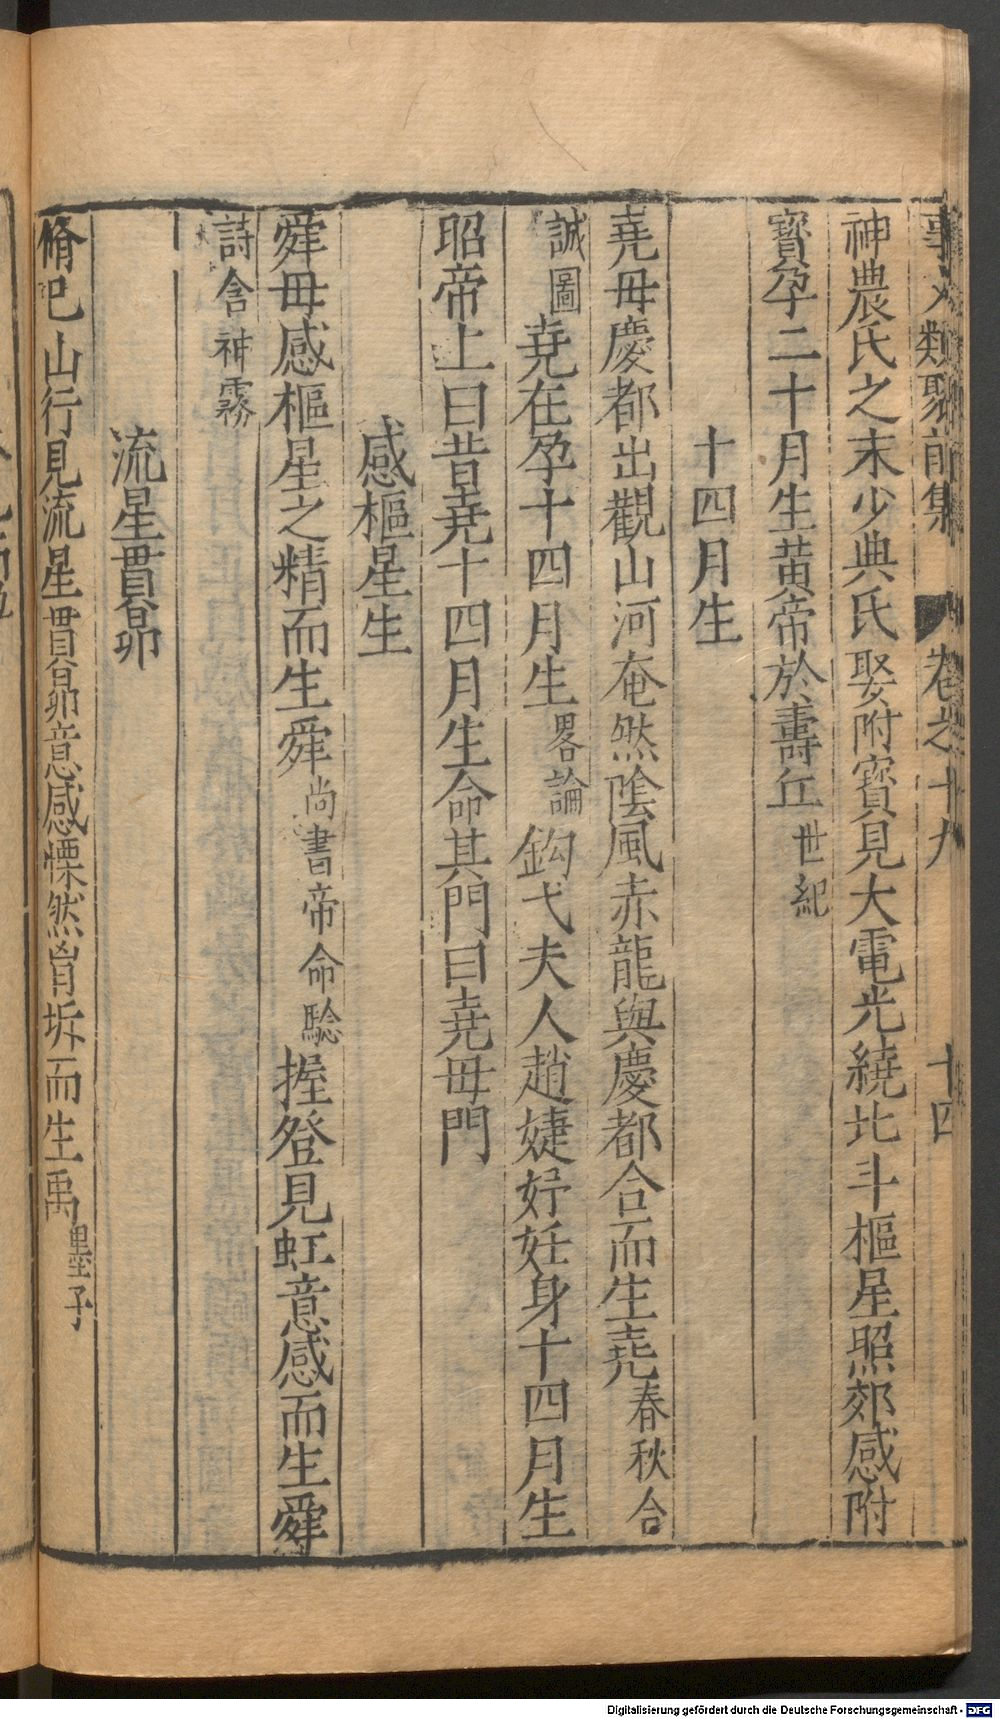 事文類聚前集 卷之十九 十四
神農氏之末少典氏娶附寶見大電光繞北斗樞星照郊感附
寶孕二十月生黃帝於壽丘世紀
十四月生
堯母慶都出觀山河奄然陰風赤龍與慶都合而生堯春秋合
誠圖堯在孕十四月生畧論鈎弋夫人趙婕妤妊身十四月生
昭帝上曰昔堯十四月生命其門曰堯母門
感樞星生
舜母感樞星之精而生舜尚書帝命驗握登見虹意感而生舜
詩含神霧
流星貫昴
脩巳山行見流星貫昴意感慄然胷坼而生禹墨子
Digitalisierung gefördert durch die Deutsche Forschungsgemeinschaft - DFG